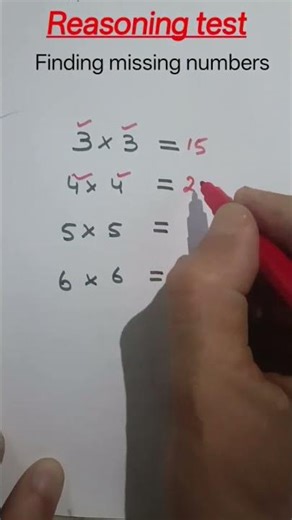 Reasoning test
Finding missing numbers
3 × 3 = 15
4 × 4 = 2
5 × 5 =
6 × 6 =